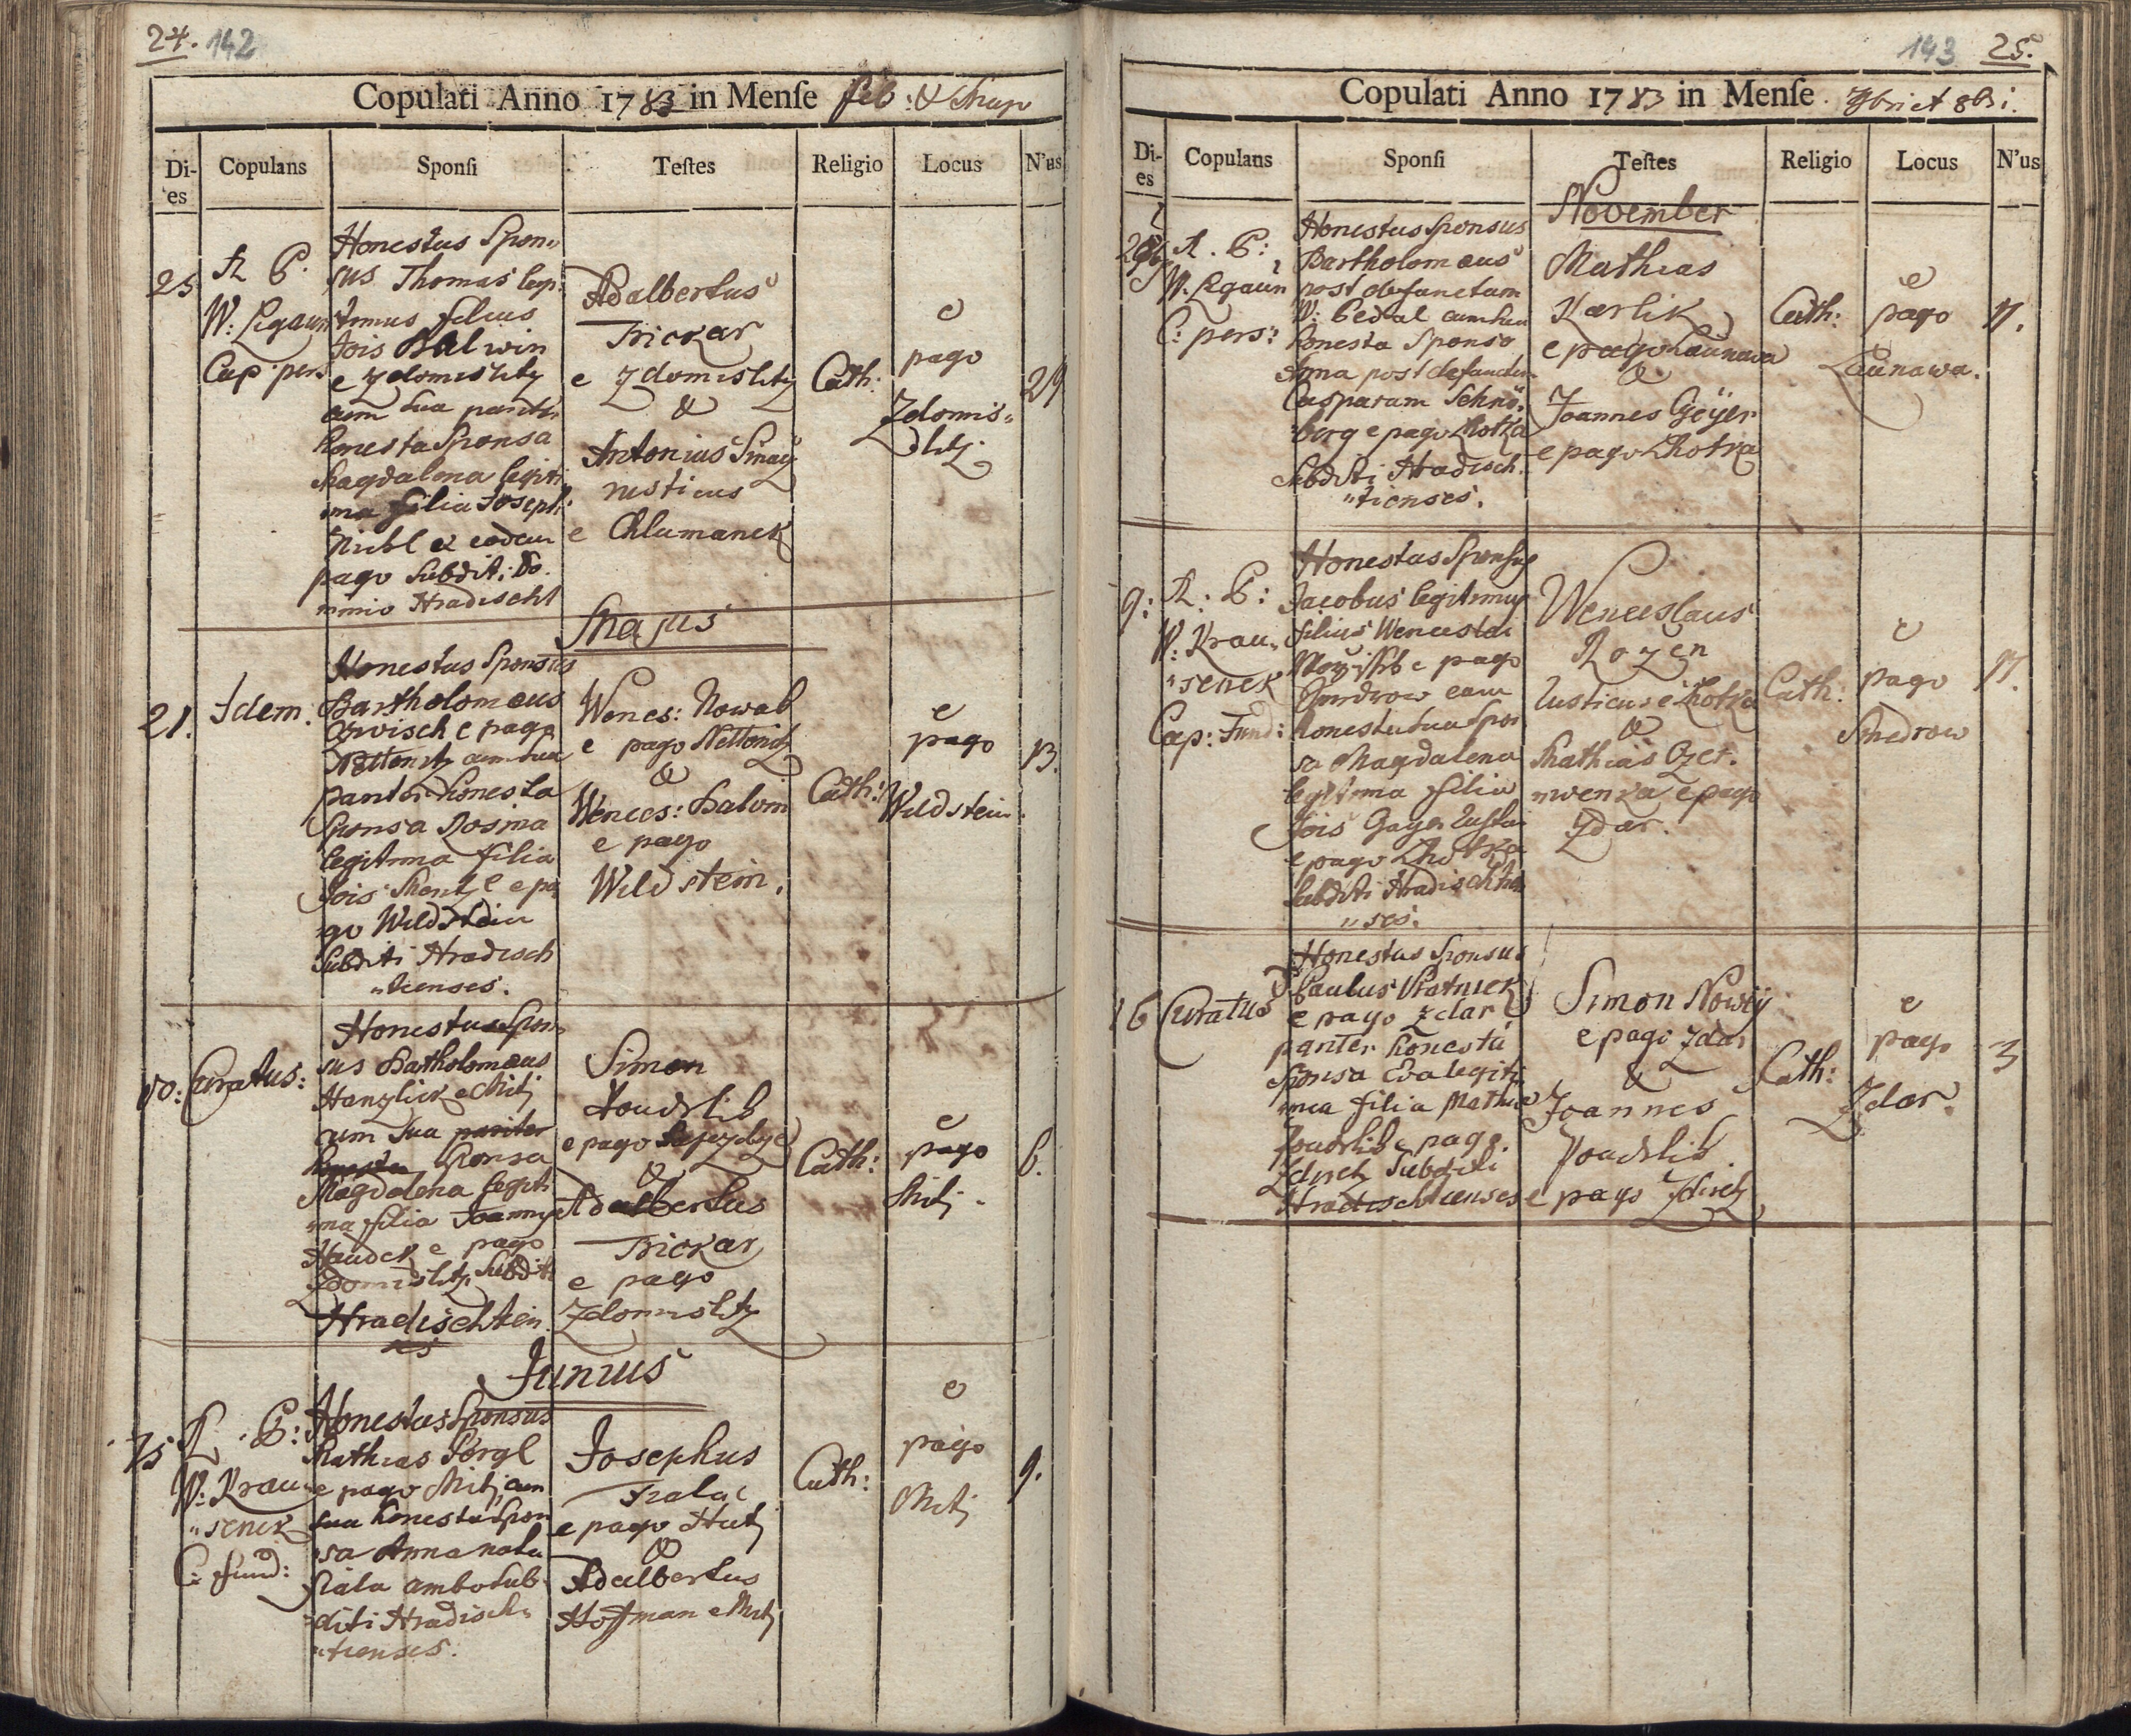 24. 142
Copulati Anno 1783 in Mense feb: &
Di-
es
Copulans
Sponsi
Testes
Religio
Locus
N'us
25
R. P.
W:
Cap: pers
Honestus Spon„
sus Thomas legi„
timus filius
Jois Balwin
e Zdomislitz
cum sua pariter
honesta Sponsa
Magdalena legiti
ma filia Josephi
ex eodem
pago Subditi Do„
minio Hradischt
Adalbertus
Trickar
e Zdomislitz
&
Antonius
rusticus
e Chlumanek
Cath:
e
pago
Zdomis„
dlitz
29
Majus
21.
Idem.
Honestus Sponsus
Bartholomæus
e pago
Nettonitz cum sua
pariter honesta
Sponsa Rosina
legitima filia
Jois e pa
go Wildstein
Subditi Hradisch
„tienses.
Wences: Nowak
e pago Nettonitz
&
Wences:
e pago
Wildstein.
Cath:
e
pago
Wildstein.
13.
Curatus:
Honestus Spon„
sus Bartholomæus
Hanzlick e Mitj
cum sua pariter
honesta Sponsa
Magdalena legiti
ma filia Joannis
e pago
Zdomislitz Subditi
Hradischtien
ses
Simon
Koudrlib
e pago
&
Adalbertus
Trickar
e pago
Zdomislitz
Cath:
e
pago
Mitj.
6.
Junius
R. P:
W: Krau„
„senek
C: fund:
Honestus Sponsus
Mathias Pörgl
e pago Mitj cum
sua honesta Spon
sa Anna nata
Fiala ambo Sub
diti Hradisch„
„tienses.
Josephus
Fiala
e pago Hutj
&
Adalbertus
Hoffman e Mitj
Cath:
e
pago
Mitj
9.
143 25.
Copulati Anno 1783 in Mense 9bri et 8bri.
Di-
es
Copulans
Sponsi
Testes
Religio
Locus
N'us
November
R. P:
W:
C: pers:
Honestus Sponsus
Bartholomæus
post defunctam
W: Pedal cum sua
honesta Sponsa
Anna post defunctum
Casparum Schnö„
berg e pago Lhotka
Subditi Hradisch.
„tienses.
Mathias
Karlik
e pago Launawa
&
Joannes Geÿer
e pago Lhotka
Cath:
e
pago
Launawa.
9:
R: P:
W: Krau„
„senek
Cap: Fund:
Honestus Sponsus
Jacobus legitimus
filius Wenceslai
e pago
cum
honesta sua Spon
sa Magdalena
legitima filia
Jois Gayer
e pago Lhotka
Subditi Hradischtien
„ses.
Wenceslaus
Rozen
rusticus e Lhotka
&
Mathias Czer„
nwenka e pago
Zdar.
Cath:
e
pago
16
Curatus
Honestus Sponsus
Paulus Kratniek
e pago Zdar
pariter honesta
Sponsa Eva legiti
mea filia Mathiæ
Koudrlib e pago
Zdiretz Subditi
Hradischtienses
Simon Nowÿ
e pago Zdar
&
Joannes
Koudrlib
e pago Zdiretz
Cath:
e
pago
Zdar.
3